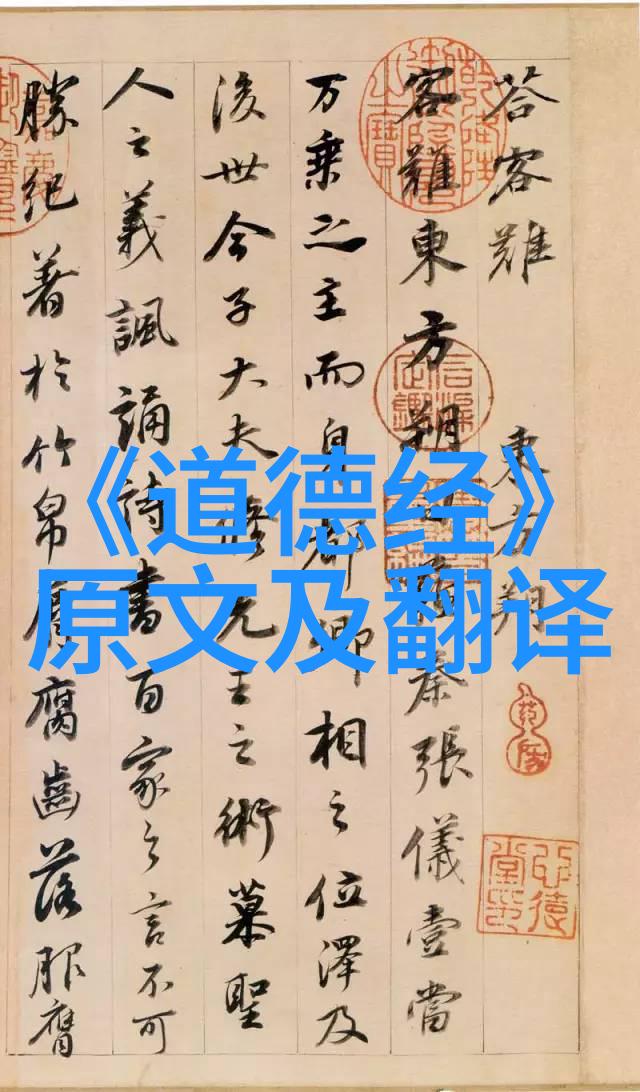 《道德经》
原文及翻译
荅客難 東方朔
客難東方朔秦張儀壹當
万乘之主而身都卿相之位澤及
後世今子大夫脩先王之術慕聖
人之義諷誦詩書百家之言不可
勝紀著於竹帛脣腐齒落服膺